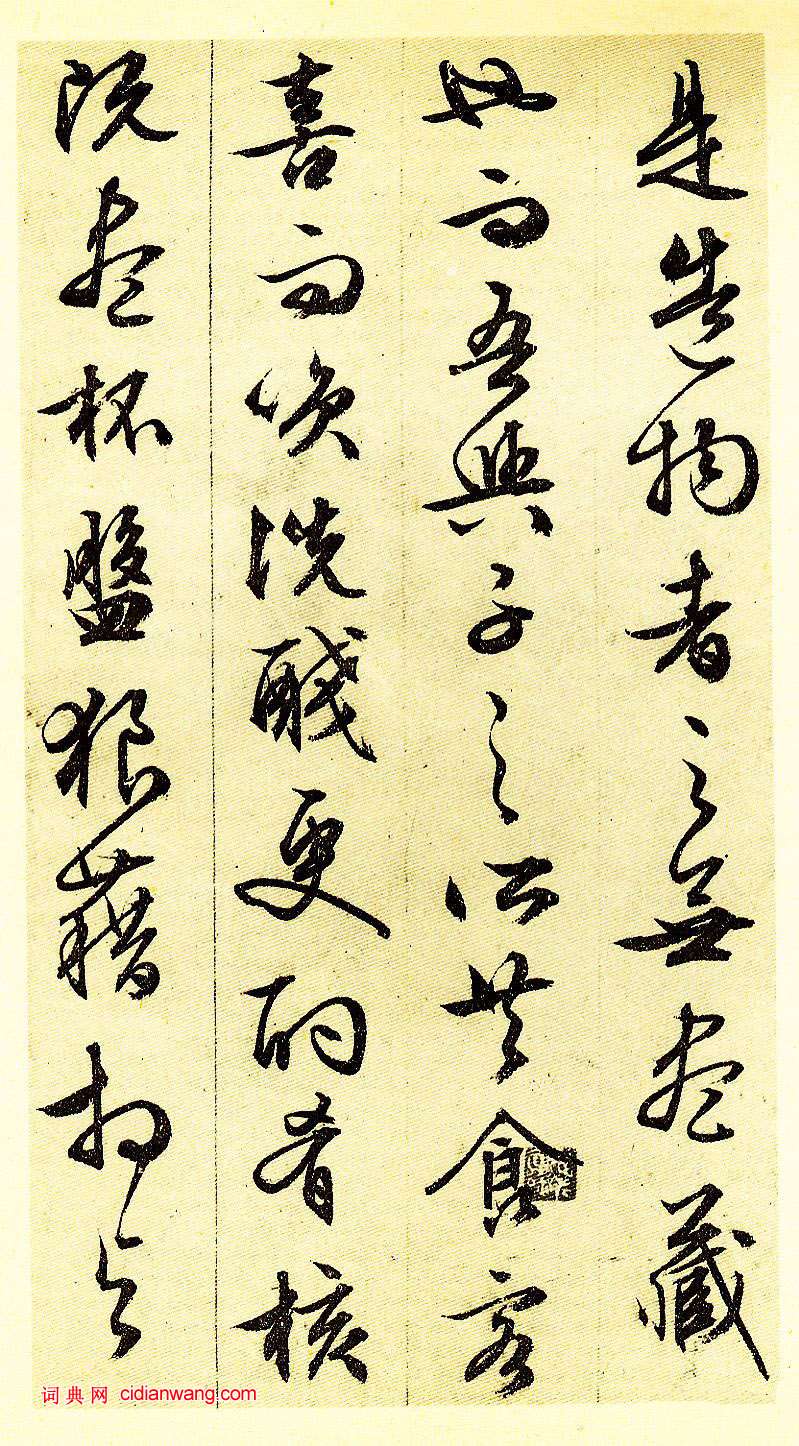 是造物者之無盡藏
也而吾與子之所共食客
喜而笑洗醆更酌肴核
既盡杯盤狼藉相與
词典网 cidianwang.com